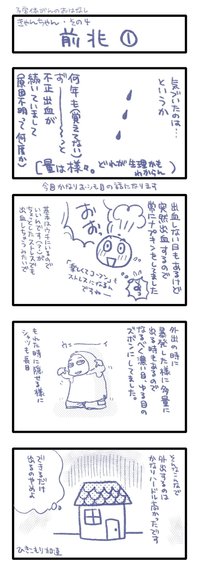 子宮体がんのおはなし
きゃんちゃん・その4
前兆①
気づいたのは…
というか
何年も(覚えてない)
ずーーーっと
不正出血が
続いていまして
(原因不明って何度か)
(量は様々。どれが生理かも
わからん)
今日かなりおシモの話になります
出血しない日もあるけど
突然出るので
常にナプキンをしてました
おおっ
楽しくてコーフンも
ストレスになるん
ですねー
基本はウチにいるので
いいんですけど
ちょっとしたストレスでも
出血しちゃうみたいで
外出の時に
暴発した様に多量に
出る時もあるので
なるべく濃い目・ゆる目の
ズボンにしてました
もれた時に隠せる様に
シャツも長目
そんなこんなで
外出するのは
かなりハードル高かったです
できるだけ
出るのやめよ
ひきこもり加速